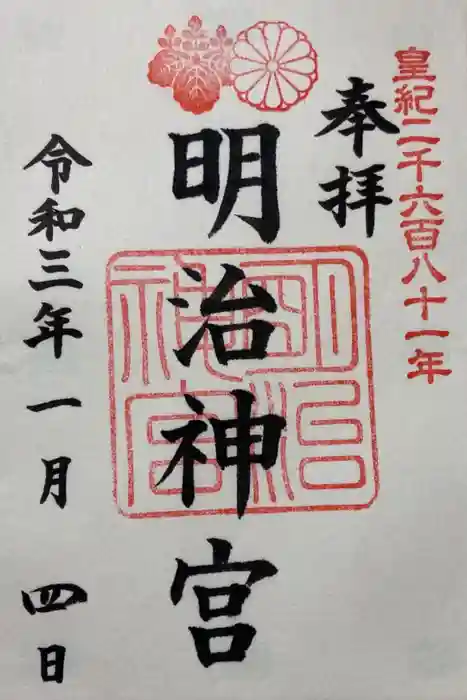 皇紀二千六百八十一年
奉拝
明治神宮
明治神宮
令和三年一月四日